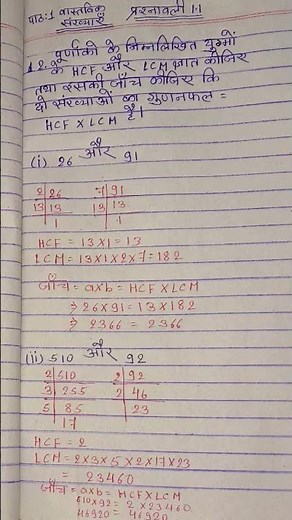 पाठ:1 वास्तविक संख्याएँ प्रश्नावली 1.1
प्र.2. पूर्णांको के निम्नलिखित युग्मों
के HCF और LCM ज्ञात कीजिए
तथा इसकी जाँच कीजिए कि
दो संख्याओं का गुणनफल =
HCF X LCM है।
(i) 26 और 91
2 26 7 91
13 13 13 13
1 1
HCF = 13X1 = 13
LCM = 13X1X2X7 = 182
जाँच = axb = HCF X LCM
⇒ 26 X 91 = 13 X 182
⇒ 2366 = 2366
(ii) 510 और 92
2 510 2 92
3 255 2 46
5 85 23
17
HCF = 2
LCM = 2X3X5X2X17X23
= 23460
जाँच = axb = HCF X LCM
510X92 = 2 X 23460
46920 = 46920